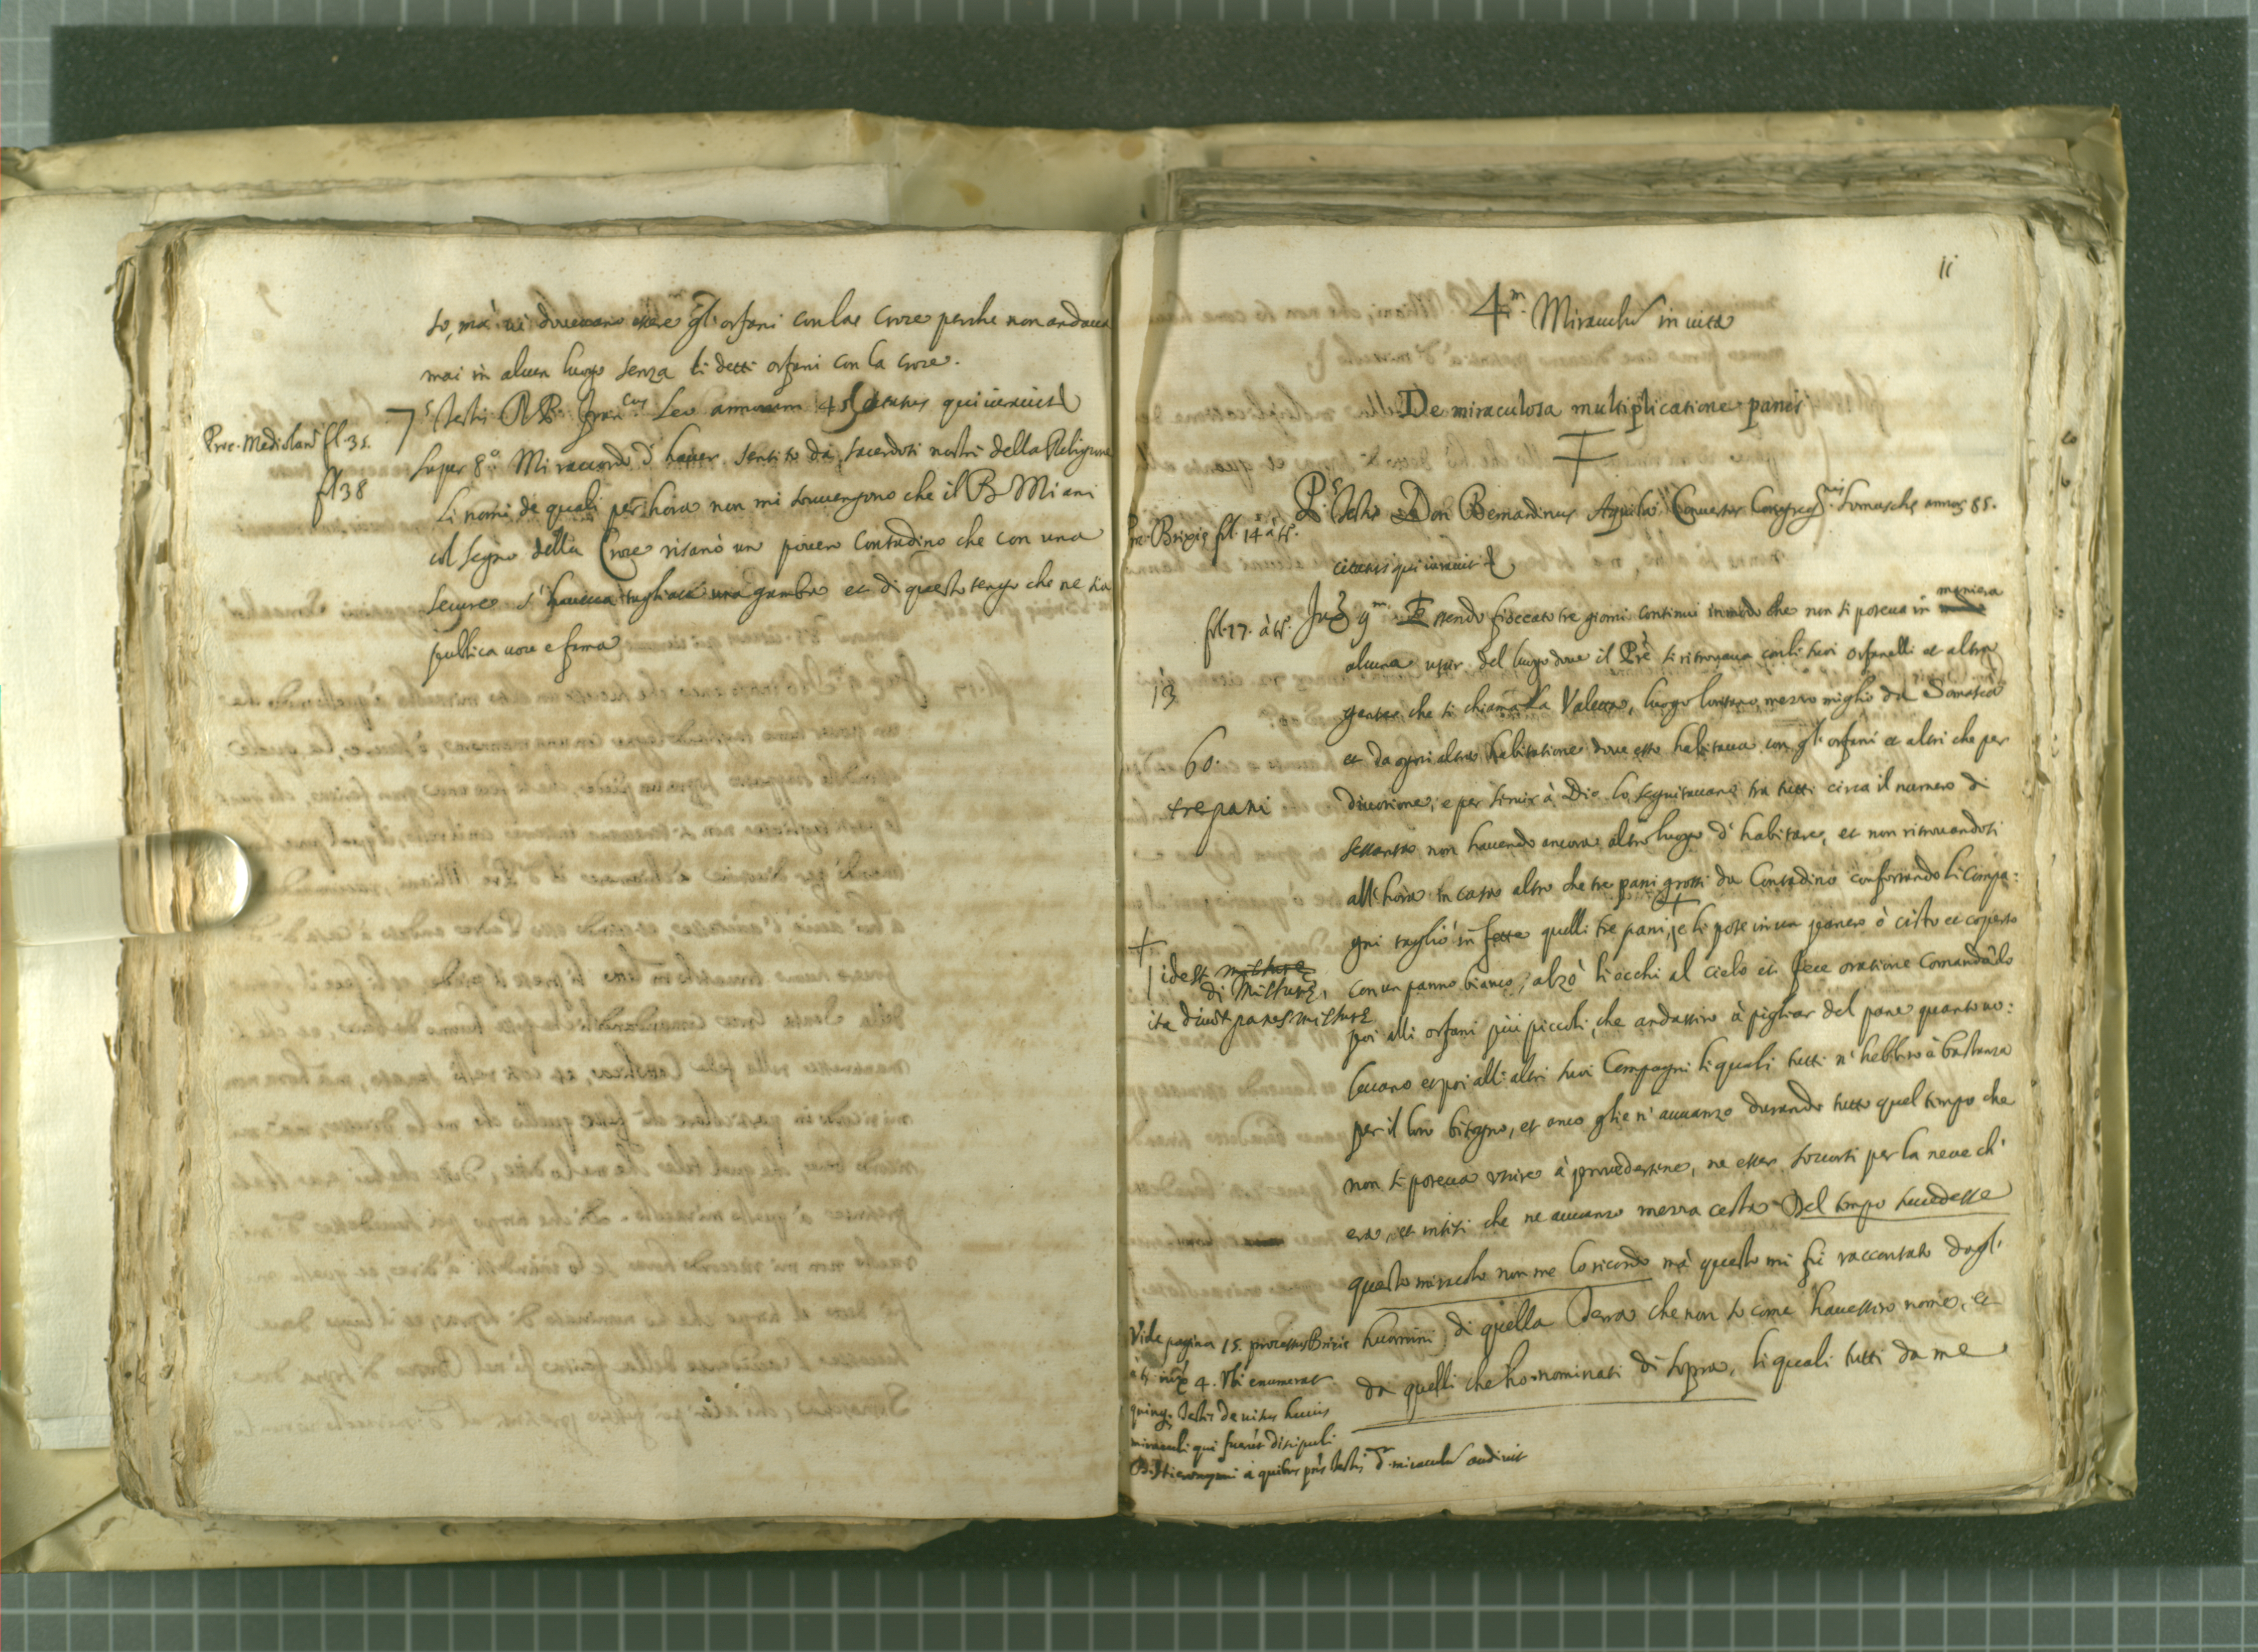 so, mà vi dovevano essere gl'orfani con la Croce perche non andava
mai in alcun luogo senza li detti orfani con la croce.
Proc. Mediolani fl. 35.
7 Testis R. P. Fran.cus Leo annorum 45 ætatis qui iuravit
fl 38
super 8.º Mi raccordo d'haver sentito da sacerdoti nostri della Religione
li nomi de quali per hora non mi sovvengono che il B. Miani
col segno della Croce risanò un povero Contadino che con una
secure s'haveva tagliata una gamba et di questo tengo che ne sia
publica voce e fama
11
4.m Miraculum in vita
De miraculosa multiplicatione panis
Pr. Brixiæ fl. 14 à t.
P.s Testis Don Bernardinus Aquila Conversus Congreg.nis Somaschæ annor. 85.
citatus qui iuravit
fol. 17. à t.
Int. 9.m Essendo fioccato tre giorni continui in modo che non si poteva in maniera
alcuna uscir del luogo dove il Prè si ritrovava con li suoi orfanelli et altra
13
gente che si chiama la Valletta, luogo lontano mezzo miglio da Somasca
et da ogni altra habitatione dove esso habitava con gl'orfani et altri che per
60.
divotione, e per servir à Dio lo seguitavano tra tutti circa il numero di
tre pani
sessanta non havendo ancora altro luogo d'habitare, et non ritrovandosi
all'hora in casa altro che tre pani grossi da Contadino confortando li compa:
gni tagliò in fette quelli tre pani, e li pose in un paniero ò cesto et coperto
idest misture
di Misture,
ita dicit panes misture
con un panno bianco, alzò li occhi al cielo et fece oratione Comandādo
poi alli orfani più piccoli, che andassero à pigliar del pane quanto vo:
levano et poi alli altri suoi Compagni li quali tutti n'hebbero à bastanza
per il loro bisogno, et anco glie n'avvanzò durando tutto quel tempo che
non si poteva uscire à provedersene, ne esser soccorsi per la neve ch'
era, et intesi che ne avvanzò mezza cesta. Del tempo succedesse
questo miracolo non me lo ricordo mà questo mi fù raccontato dagl'
huomini di quella Terra che non sò come havessero nome, et
da quelli che ho nominati di sopra, li quali tutti da me
Vide pagina 15. processus Brixiæ
à t. 4. Ubi enumerat
quinq. Testes de visu huius
miraculi qui fuerūt discipuli
B. Hieronymi à quibus testis d. miraculū audivit